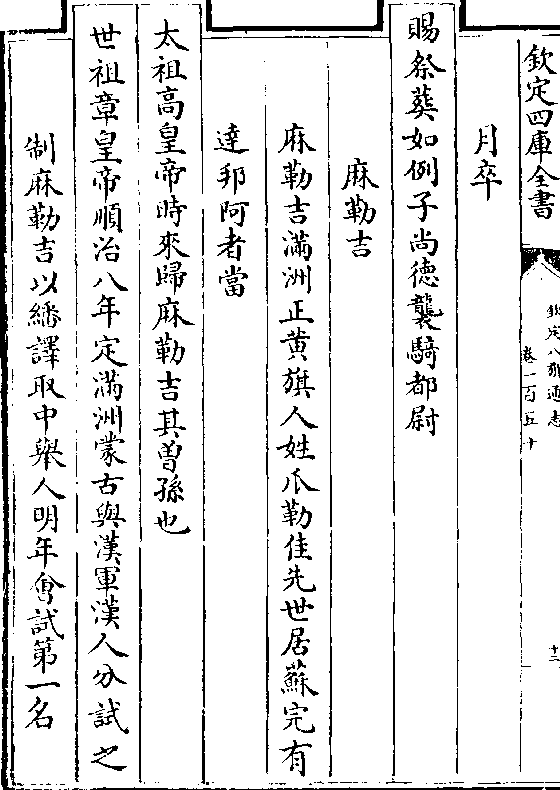 欽定四庫全書
欽定八旗通志
卷一百五十
十三
月卒
賜祭葬如例子尚德襲騎都尉
麻勒吉
麻勒吉滿洲正黄旗人姓爪勒佳先世居蘇完有
達邦阿者當
太祖高皇帝時來歸麻勒吉其曽孫也
世祖章皇帝順治八年定滿洲蒙古與漢軍漢人分試之
制麻勒吉以繙譯取中舉人明年會試第一名